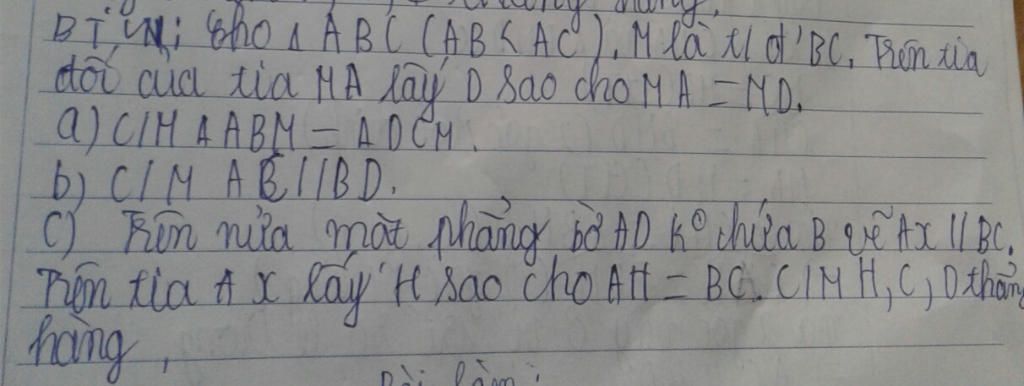 BTVN: Cho Δ ABC (AB < AC), M là tđ BC, Trên tia
đối của tia MA lấy D sao cho MA = MD.
a) C/M Δ ABM = Δ DCM.
b) C/M AC // BD.
c) Trên nửa mặt phẳng bờ AD k° chứa B vẽ Ax // BC.
Trên tia Ax lấy H sao cho AH = BC. C/M H, C, D thẳng
hàng,
Bài làm: